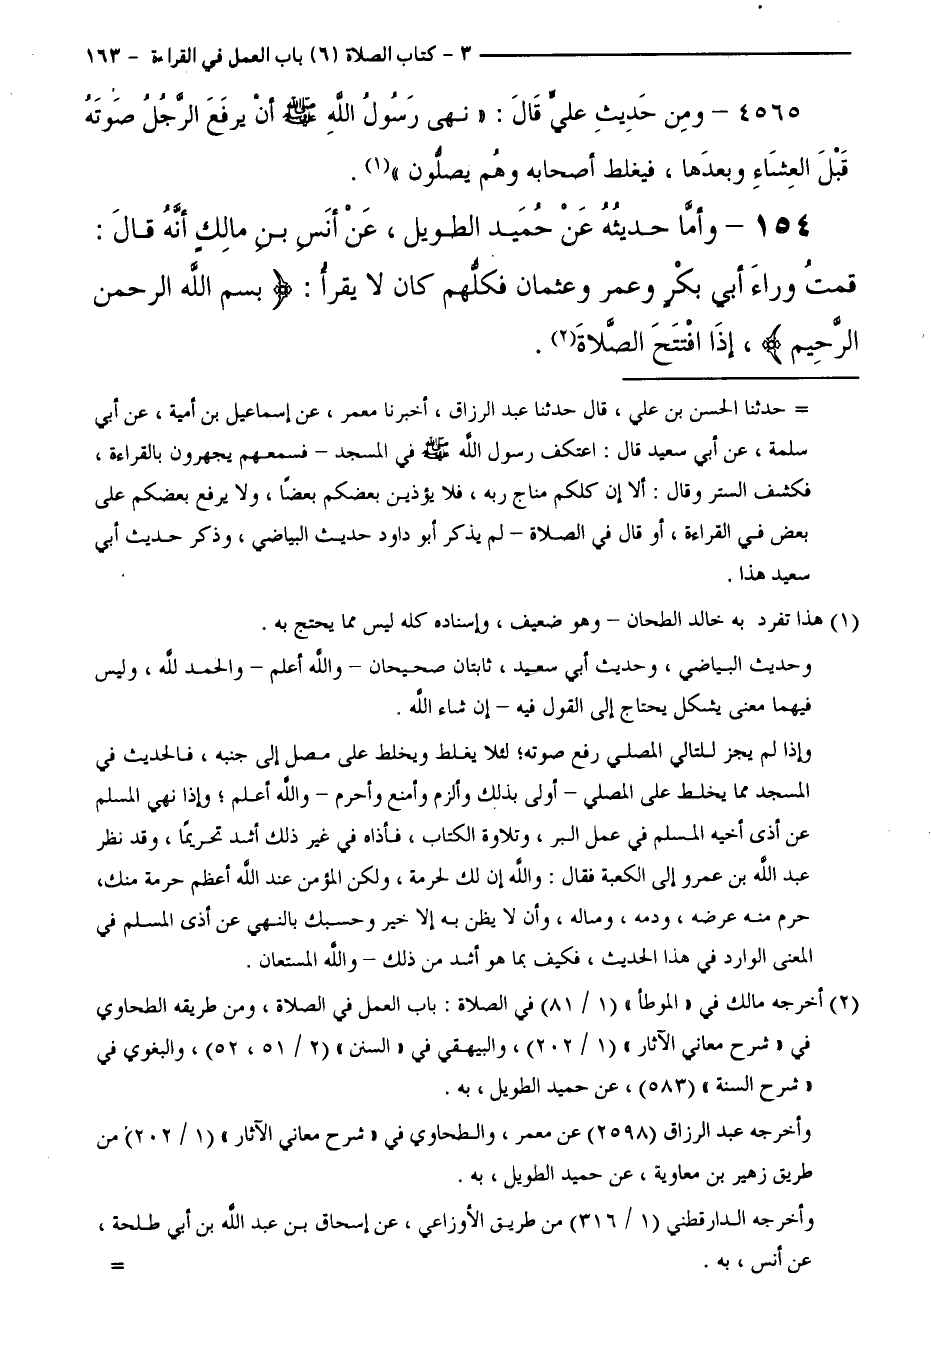 ٣ - كتاب الصلاة (٦) باب العمل في القراءة - ١٦٣
٤٥٦٥ - ومِن حَدِيثِ عليٍّ قَالَ : « نهى رَسُولُ اللَّهِ ﷺ أَنْ يرفَعَ الرَّجُلُ صَوتَهُ
قَبْلَ العِشَاءِ وبعدَها ، فيغلط أصحابه وهُم يصلُّون »(١) .
١٥٤ - وأمَّا حديثُهُ عَنْ حُمَيد الطويل ، عَنْ أنَسِ بنِ مالِكٍ أنَّهُ قالَ :
قمتُ وراءَ أبي بكْرٍ وعمر وعثمان فكلُّهم كان لا يقرأُ : ﴿ بسم الله الرحمن
الرَّحِيم ﴾ ، إذَا افْتَتَحَ الصَّلاةَ(٢) .
= حدثنا الحسن بن علي ، قال حدثنا عبد الرزاق ، أخبرنا معمر ، عن إسماعيل بن أمية ، عن أبي
سلمة ، عن أبي سعيد قال : اعتكف رسول اللَّه ﷺ في المسجد – فسمعهم يجهرون بالقراءة ،
فكشف الستر وقال : ألا إن كلكم مناج ربه ، فلا يؤذين بعضكم بعضًا ، ولا يرفع بعضكم على
بعض في القراءة ، أو قال في الصلاة – لم يذكر أبو داود حديث البياضي ، وذكر حديث أبي
سعيد هذا .
(١) هذا تفرد به خالد الطحان – وهو ضعيف ، وإسناده كله ليس مما يحتج به .
وحديث البياضي ، وحديث أبي سعيد ، ثابتان صحيحان – واللَّه أعلم – والحمد للَّه ، وليس
فيهما معنى يشكل يحتاج إلى القول فيه – إن شاء اللَّه .
وإذا لم يجز للتالي المصلي رفع صوته؛ لئلا يغلط ويخلط على مصل إلى جنبه ، فالحديث في
المسجد مما يخلط على المصلي – أولى بذلك وألزم وأمنع وأحرم – واللَّه أعلم ؛ وإذا نهي المسلم
عن أذى أخيه المسلم في عمل البر ، وتلاوة الكتاب ، فأذاه في غير ذلك أشد تحريمًا ، وقد نظر
عبد اللَّه بن عمرو إلى الكعبة فقال : واللَّه إن لك لحرمة ، ولكن المؤمن عند اللَّه أعظم حرمة منك،
حرم منه عرضه ، ودمه ، وماله ، وأن لا يظن به إلا خير وحسبك بالنهي عن أذى المسلم في
المعنى الوارد في هذا الحديث ، فكيف بما هو أشد من ذلك – واللَّه المستعان .
(٢) أخرجه مالك في « الموطأ » (١ / ٨١) في الصلاة : باب العمل في الصلاة ، ومن طريقه الطحاوي
في « شرح معاني الآثار » (١ / ٢٠٢) ، والبيهقي في « السنن » (٢ / ٥١ ، ٥٢) ، والبغوي في
« شرح السنة » (٥٨٣) ، عن حميد الطويل ، به .
وأخرجه عبد الرزاق (٢٥٩٨) عن معمر ، والطحاوي في « شرح معاني الآثار » (١ / ٢٠٢) من
طريق زهير بن معاوية ، عن حميد الطويل ، به .
وأخرجه الدارقطني (١ / ٣١٦) من طريق الأوزاعي ، عن إسحاق بن عبد اللَّه بن أبي طلحة ،
عن أنس ، به . =